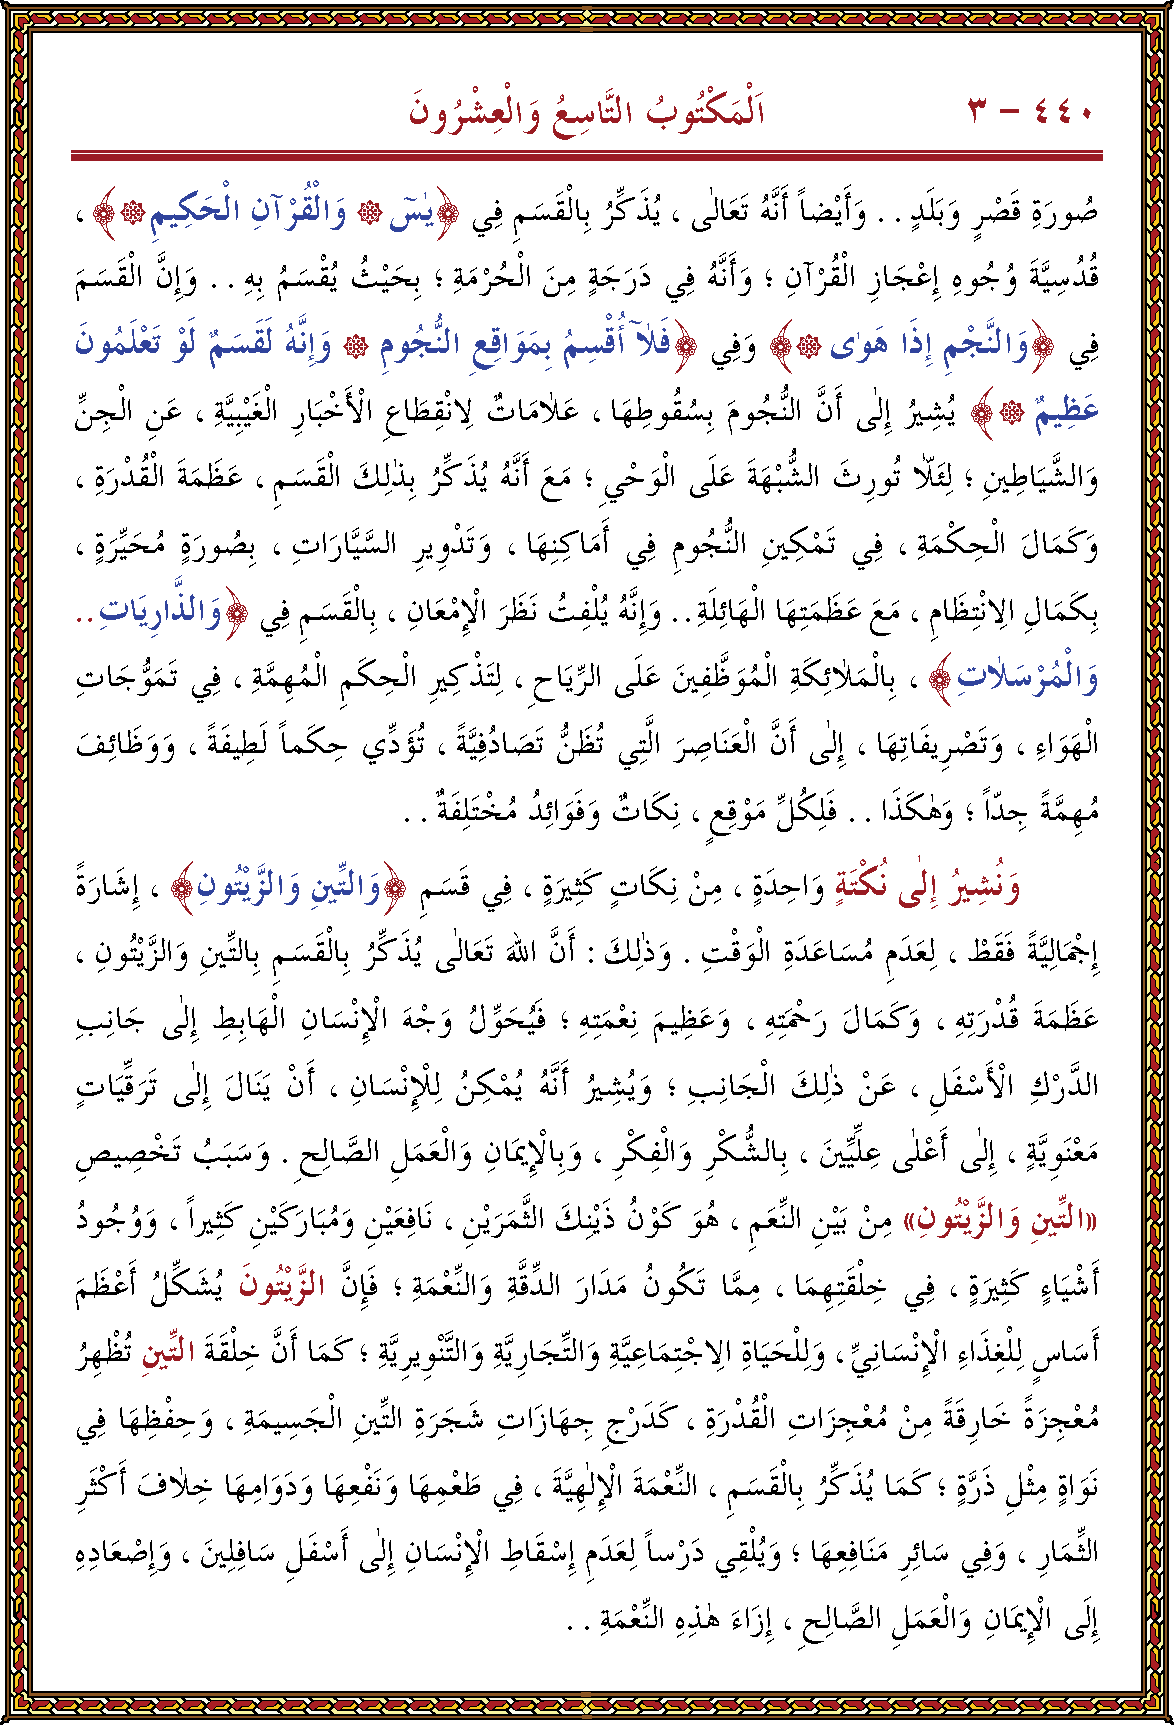 ٤٤٠ – ٣
اَلْمَكْتُوبُ التَّاسِعُ وَالْعِشْرُونَ
صُورَةِ قَصْرٍ وَبَلَدٍ . . وَأَيْضاً أَنَّهُ تَعَالٰى ، يُذَكِّرُ بِالْقَسَمِ فِي ﴿يٰسٓ ۞ وَالْقُرْآنِ الْحَكِيمِ۞﴾ ،
قُدُسِيَّةَ وُجُوهِ إِعْجَازِ الْقُرْآنِ ؛ وَأَنَّهُ فِي دَرَجَةٍ مِنَ الْحُرْمَةِ ؛ بِحَيْثُ يُقْسَمُ بِهِ . . وَإِنَّ الْقَسَمَ
فِي ﴿وَالنَّجْمِ إِذَا هَوٰى۞﴾ وَفِي ﴿فَلٰٓا أُقْسِمُ بِمَوَاقِعِ النُّجُومِ ۞ وَإِنَّهُ لَقَسَمٌ لَوْ تَعْلَمُونَ
عَظِيمٌ ۞﴾ يُشِيرُ إِلٰى أَنَّ النُّجُومَ بِسُقُوطِهَا ، عَلاٰمَاتٌ لِانْقِطَاعِ الْأَخْبَارِ الْغَيْبِيَّةِ ، عَنِ الْجِنِّ
وَالشَّيَاطِينِ ؛ لِئَلاّٰ تُورِثَ الشُّبْهَةَ عَلَى الْوَحْيِ ؛ مَعَ أَنَّهُ يُذَكِّرُ بِذٰلِكَ الْقَسَمِ ، عَظَمَةَ الْقُدْرَةِ ،
وَكَمَالَ الْحِكْمَةِ ، فِي تَمْكِينِ النُّجُومِ فِي أَمَاكِنِهَا ، وَتَدْوِيرِ السَّيَّارَاتِ ، بِصُورَةٍ مُحَيِّرَةٍ ،
بِكَمَالِ الِانْتِظَامِ ، مَعَ عَظَمَتِهَا الْهَائِلَةِ . . وَإِنَّهُ يُلْفِتُ نَظَرَ الْإِمْعَانِ ، بِالْقَسَمِ فِي ﴿وَالذَّارِيَاتِ . .
وَالْمُرْسَلاٰتِ﴾ ، بِالْمَلاٰئِكَةِ الْمُوَظَّفِينَ عَلَى الرِّيَاحِ ، لِتَذْكِيرِ الْحِكَمِ الْمُهِمَّةِ ، فِي تَمَوُّجَاتِ
الْهَوَاءِ ، وَتَصْرِيفَاتِهَا ، إِلٰى أَنَّ الْعَنَاصِرَ الَّتِي تُظَنُّ تَصَادُفِيَّةً ، تُؤَدِّي حِكَماً لَطِيفَةً ، وَوَظَائِفَ
مُهِمَّةً جِدّاً ؛ وَهٰكَذَا . . فَلِكُلِّ مَوْقِعٍ ، نِكَاتٌ وَفَوَائِدُ مُخْتَلِفَةٌ . .
وَنُشِيرُ إِلٰى نُكْتَةٍ وَاحِدَةٍ ، مِنْ نِكَاتٍ كَثِيرَةٍ ، فِي قَسَمِ ﴿وَالتِّينِ وَالزَّيْتُونِ﴾ ، إِشَارَةً
إِجْمَالِيَّةً فَقَطْ ، لِعَدَمِ مُسَاعَدَةِ الْوَقْتِ . وَذٰلِكَ : أَنَّ اللهَ تَعَالٰى يُذَكِّرُ بِالْقَسَمِ بِالتِّينِ وَالزَّيْتُونِ ،
عَظَمَةَ قُدْرَتِهِ ، وَكَمَالَ رَحْمَتِهِ ، وَعَظِيمَ نِعْمَتِهِ ؛ فَيُحَوِّلُ وَجْهَ الْإِنْسَانِ الْهَابِطِ إِلٰى جَانِبِ
الدَّرْكِ الْأَسْفَلِ ، عَنْ ذٰلِكَ الْجَانِبِ ؛ وَيُشِيرُ أَنَّهُ يُمْكِنُ لِلْإِنْسَانِ ، أَنْ يَنَالَ إِلٰى تَرَقِّيَاتٍ
مَعْنَوِيَّةٍ ، إِلٰى أَعْلٰى عِلِّيِّينَ ، بِالشُّكْرِ وَالْفِكْرِ ، وَبِالْإِيمَانِ وَالْعَمَلِ الصَّالِحِ . وَسَبَبُ تَخْصِيصِ
«التِّينِ وَالزَّيْتُونِ» مِنْ بَيْنِ النِّعَمِ ، هُوَ كَوْنُ ذَيْنِكَ الثَّمَرَيْنِ ، نَافِعَيْنِ وَمُبَارَكَيْنِ كَثِيراً ، وَوُجُودُ
أَشْيَاءٍ كَثِيرَةٍ ، فِي خِلْقَتِهِمَا ، مِمَّا تَكُونُ مَدَارَ الدِّقَّةِ وَالنِّعْمَةِ ؛ فَإِنَّ الزَّيْتُونَ يُشَكِّلُ أَعْظَمَ
أَسَاسٍ لِلْغِذَاءِ الْإِنْسَانِيِّ ، وَلِلْحَيَاةِ الِاجْتِمَاعِيَّةِ وَالتِّجَارِيَّةِ وَالتَّنْوِيرِيَّةِ ؛ كَمَا أَنَّ خِلْقَةَ التِّينِ تُظْهِرُ
مُعْجِزَةً خَارِقَةً مِنْ مُعْجِزَاتِ الْقُدْرَةِ ، كَدَرْجِ جِهَازَاتِ شَجَرَةِ التِّينِ الْجَسِيمَةِ ، وَحِفْظِهَا فِي
نَوَاةٍ مِثْلِ ذَرَّةٍ ؛ كَمَا يُذَكِّرُ بِالْقَسَمِ ، النِّعْمَةَ الْإِلٰهِيَّةَ ، فِي طَعْمِهَا وَنَفْعِهَا وَدَوَامِهَا خِلاٰفَ أَكْثَرِ
الثِّمَارِ ، وَفِي سَائِرِ مَنَافِعِهَا ؛ وَيُلْقِي دَرْساً لِعَدَمِ إِسْقَاطِ الْإِنْسَانِ إِلٰى أَسْفَلِ سَافِلِينَ ، وَإِصْعَادِهِ
إِلَى الْإِيمَانِ وَالْعَمَلِ الصَّالِحِ ، إِزَاءَ هٰذِهِ النِّعْمَةِ . .